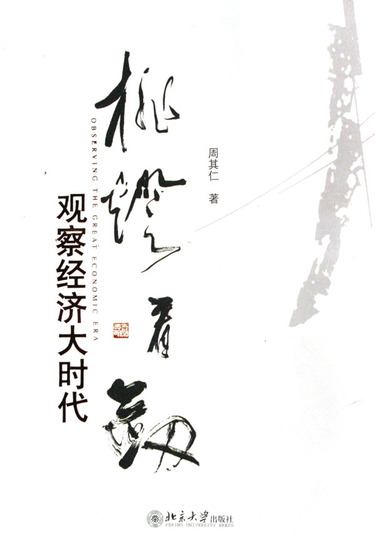 挑燈看劍
OBSERVING THE GREAT ECONOMIC ERA
观察经济大时代
周其仁 著
北京大学出版社
PEKING UNIVERSITY PRESS